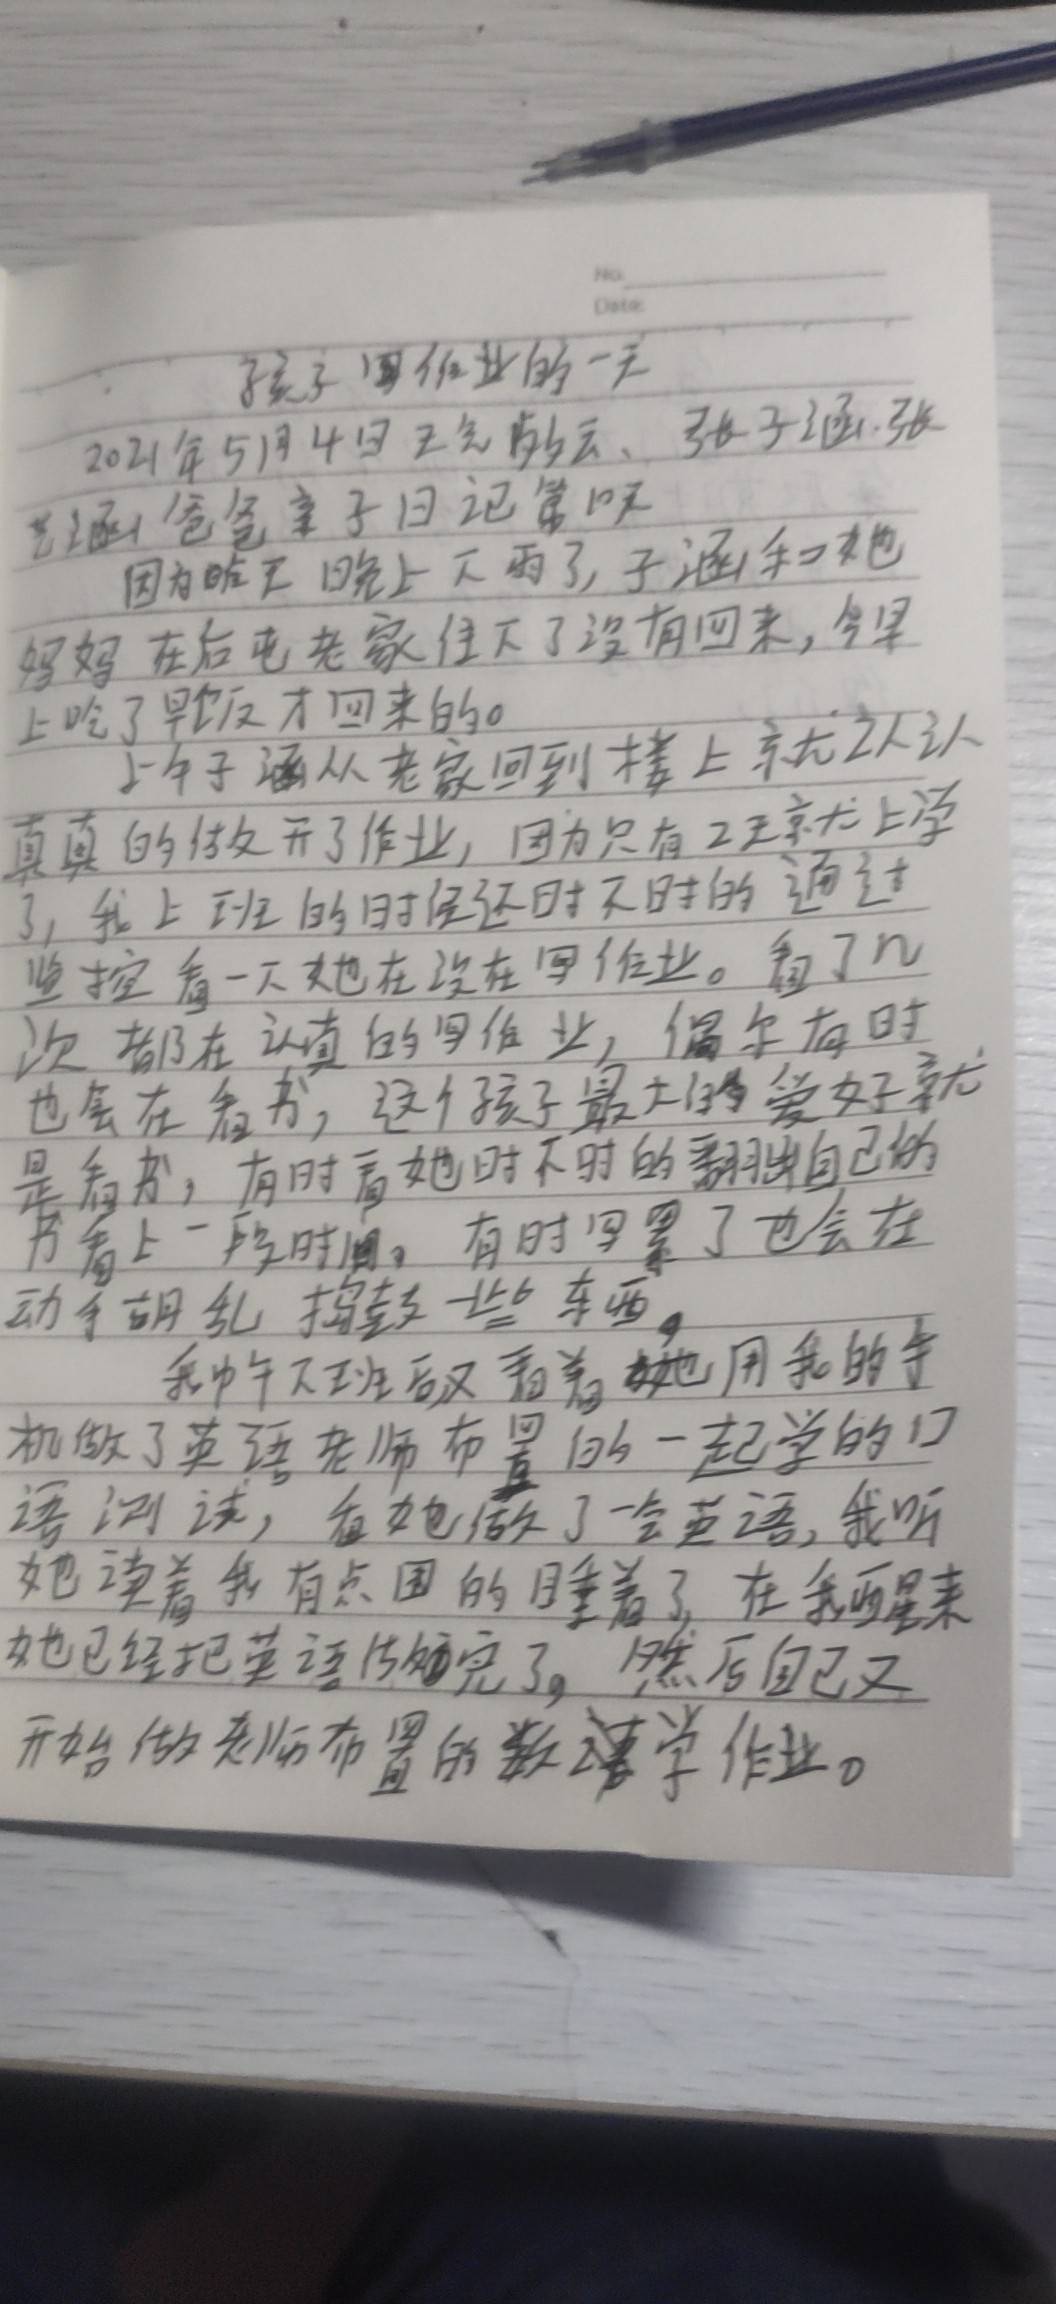 No.
Date:
孩子写作业的一天
2021年5月4日 天气多云、张子涵.张
艺涵爸爸亲子日记第 天
因为昨天晚上下雨了,子涵和她
妈妈在后屯老家住下了没有回来,今早
上吃了早饭才回来的。
上午子涵从老家回到楼上就认认
真真的做开了作业,因为只有2天就上学
了,我上班的时候还时不时的通过
监控看一下她在没在写作业。看了几
次都在认真的写作业,偶尔有时
也会在看书,这个孩子最大的爱好就
是看书,有时看她时不时的翻出自己的
书看上一段时间。有时写累了也会在
动手胡乱捣鼓一些东西。
我中午下班后又看着她用我的手
机做了英语老师布置的一起学的口
语测试,看她做了一会英语,我听
她读着我有点困的睡着了,在我醒来
她已经把英语做完了。然后自己又
开始做老师布置的数学作业。